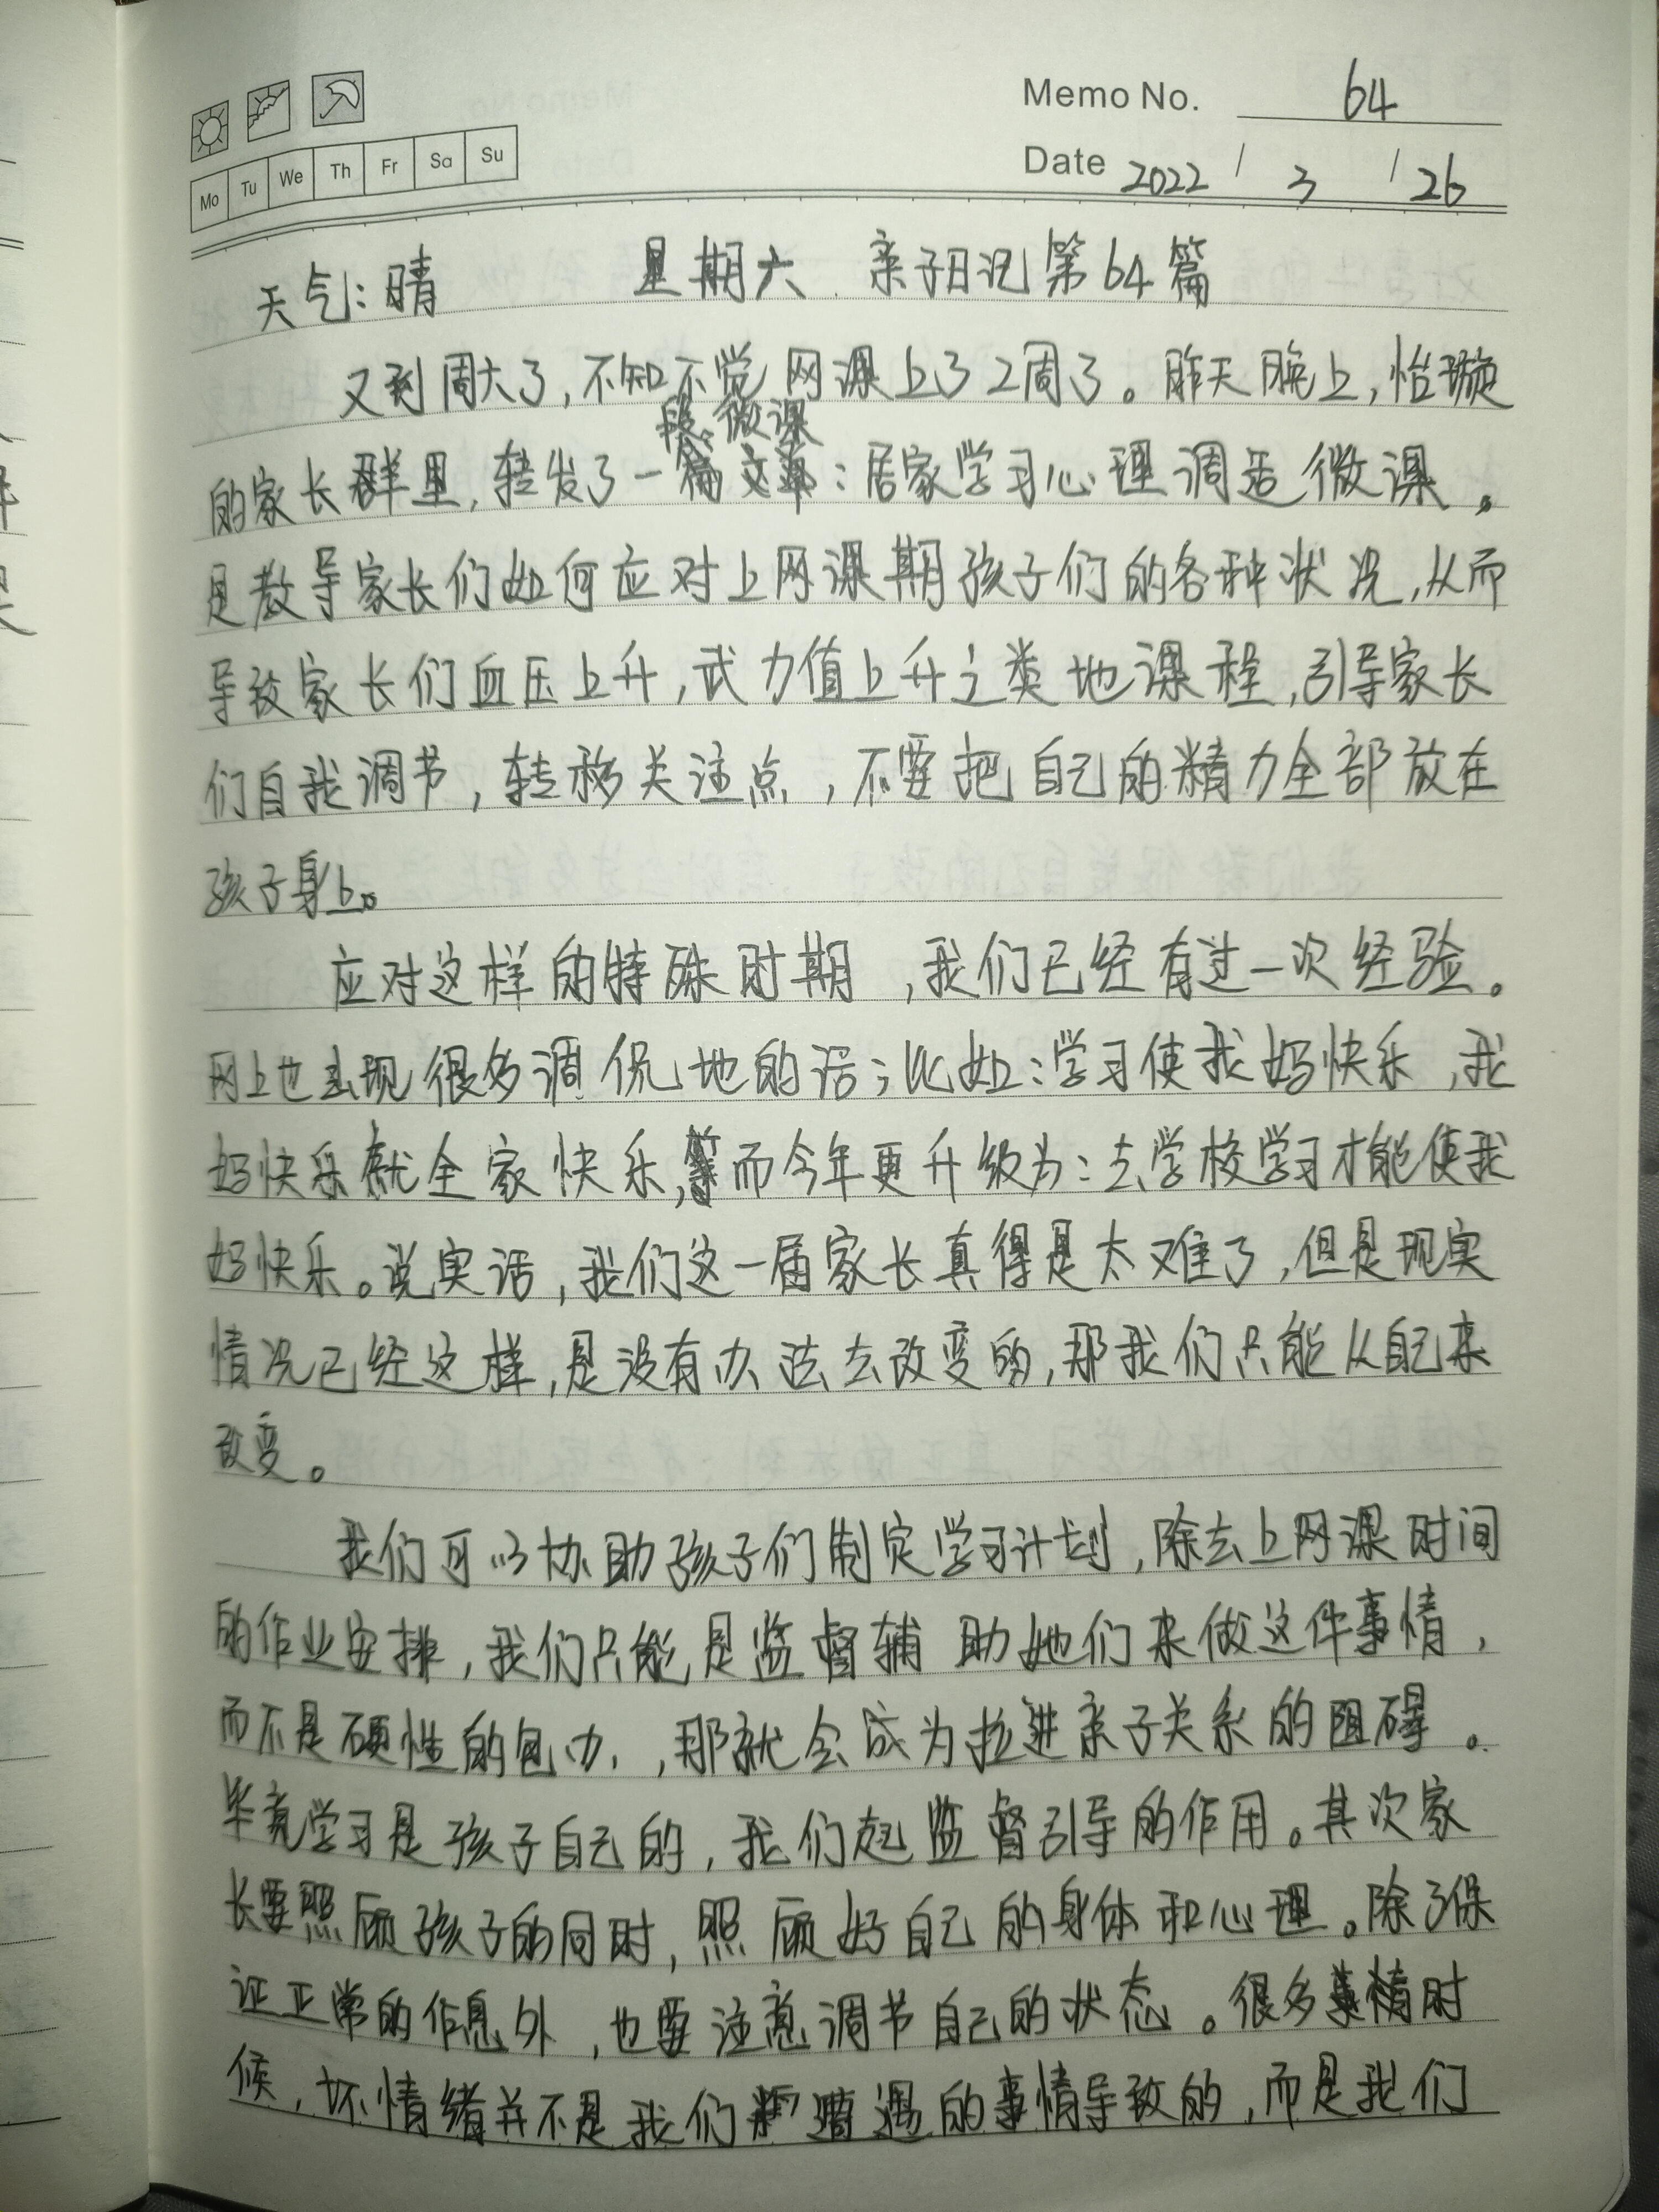 Memo No. 64
Mo Tu We Th Fr Sa Su
Date 2022 / 3 / 26
天气:晴 星期六 亲子日记第64篇
又到周六了,不知不觉网课上了2周了。昨天晚上,怡璇
段微课
的家长群里,转发了一篇文章:居家学习心理调适微课。
是教导家长们如何应对上网课期孩子们的各种状况,从而
导致家长们血压上升,武力值上升之类地课程,引导家长
们自我调节,转移关注点,不要把自己的精力全部放在
孩子身上。
应对这样的特殊时期,我们已经有过一次经验。
网上也出现很多调侃地的话;比如:学习使我妈快乐,我
妈快乐就全家快乐,等而今年更升级为:去学校学习才能使我
妈快乐。说实话,我们这一届家长真得是太难了,但是现实
情况已经这样,是没有办法去改变的,那我们只能从自己来
改变。
我们可以协助孩子们制定学习计划,除去上网课时间
的作业安排,我们只能是监督辅助她们来做这件事情,
而不是硬性的包办,那就会成为拉进亲子关系的阻碍。
毕竟学习是孩子自己的,我们起监督引导的作用。其次家
长要照顾孩子的同时,照顾好自己的身体和心理。除了保
证正常的作息外,也要注意调节自己的状态。很多事情时
候,坏情绪并不是我们遭遇的事情导致的,而是我们